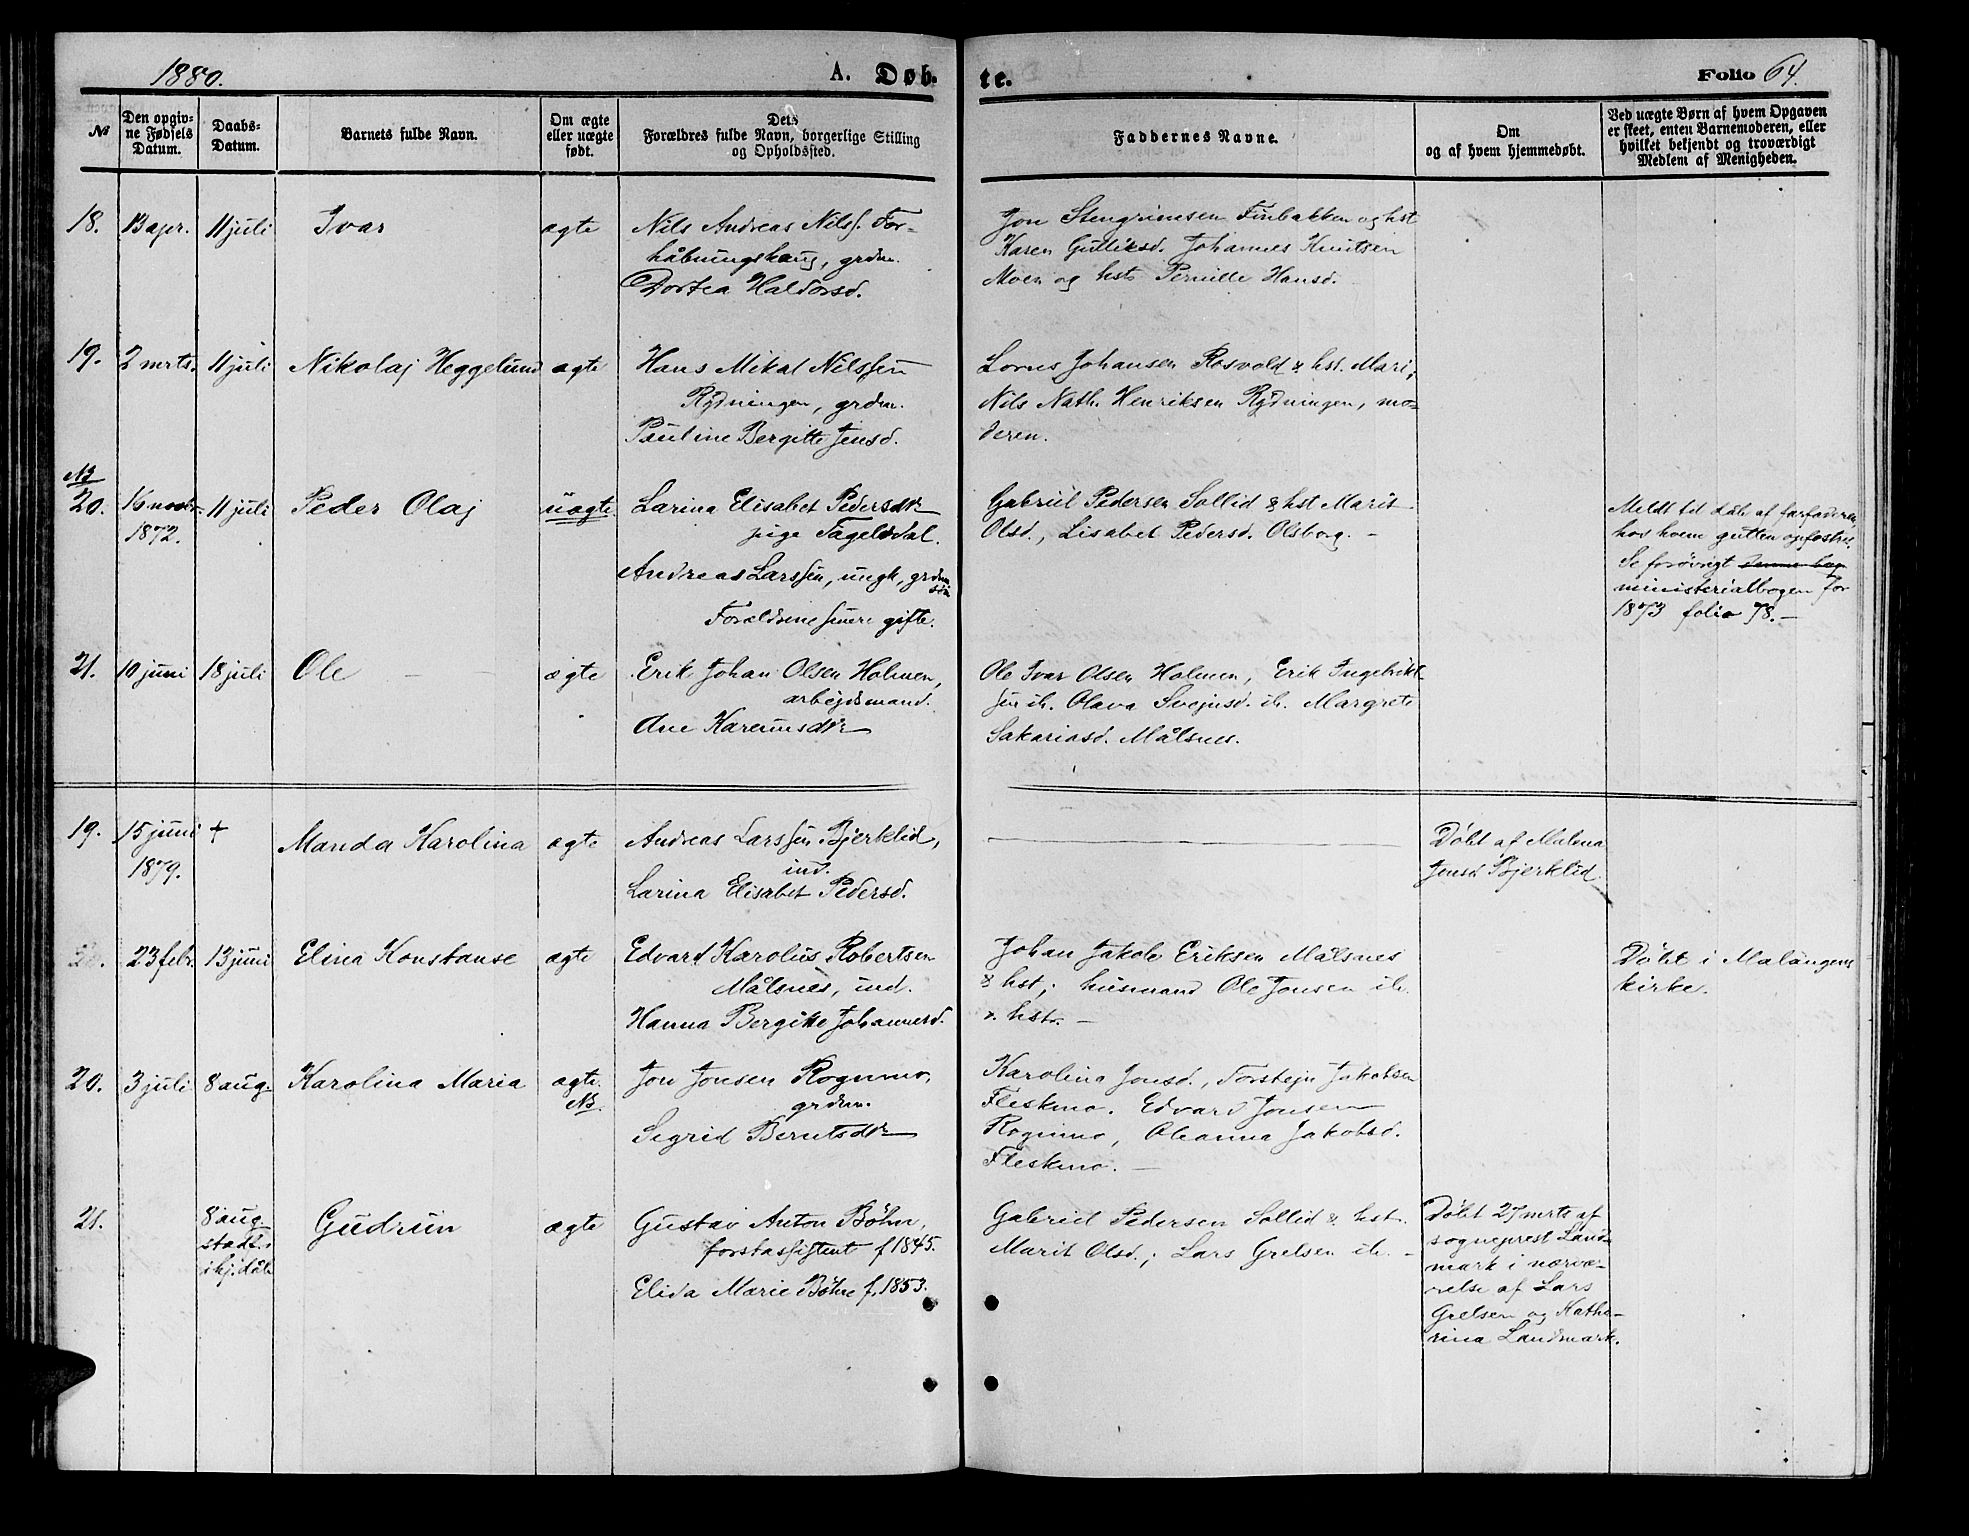 1880.
A. Døb-
te.
Folio 64.
No
Den opgiv-
ne Fødsels
Datum.
Daabs-
Datum.
Barnets fulde Navn.
Om ægte
eller uægte
født.
Dets
Forældres fulde Navn, borgerlige Stilling
og Opholdssted.
Faddernes Navne.
Om
og af hvem hjemmedøbt.
Ved uægte Børn af hvem Opgaven
er skeet, enten Barnemoderen, eller
hvilket bekjendt og troværdigt
Medlem af Menigheden.
18.
13 apr.
11 juli
Ivar
ægte
Nils Andreas Nilss. For-
håbningshaug, grdm.
Dortea Haldorsd.
Jon Stengrimsen Finbakken og hst
Karen Gulliksd. Johannes Knutsen
Moen og hst Pernille Hansd.
19.
2 mrts.
11 juli
Nikolaj Heggelund
ægte
Hans Mikal Nilssen
Rydningen, grdm.
Pauline Bergitte Jensd.
Lorns Johansen Rosvold & hst. Mari;
Nils Nath. Henriksen Rydningen, mo-
deren.
NB
20.
16 novbr.
1872.
11 juli
Peder Olaj
uægte
Larina Elisabet Pedersdtr
pige Fagelidal.
Andreas Larssen, ungk, grdm
søn
Forældrene senere gifte.
Gabriel Pedersen Sollid & hst Marit
Olsd., Lisabet Pedersd. Olsborg. -
Meldt til dåb af farfaderen,
hos hvem gutten opfostres.
Se forøvrigt denne bog
ministerialbogen for
1873 folio 78. -
21.
10 juni
18 juli
Ole
ægte
Erik Johan Olsen Holmen,
arbejdsmand.
Ane Kareliusdtr
Ole Ivar Olsen Holmen, Erik Ingebrikt-
sen ib. Olava Svejnsd. ib. Margrete
Sakariasd. Målsnes.
19.
15 juni
1879.
+
Manda Karolina
ægte
Andreas Larssen Bjerklid,
ind.
Larina Elisabet Pedersd.
Døbt af Malena
Jensd Bjerklid
20.
23 febr.
13 juni
Elina Konstanse
ægte
Edvard Karolius Robertsen
Målsnes, ind.
Hanna Bergitte Johannesd.
Johan Jakob Eriksen Målsnes
& hst; husmand Ole Jonsen ib.
& hst. -
Døbt i Malangens
kirke.
20.
3 juli
8 aug.
Karolina Maria
ægte.
NB.
Jon Jonsen Rognmo,
grdm.
Sigrid Berntsdtr
Karolina Jonsd., Torstejn Jakobsen
Fleskmo. Edvard Jonsen
Rognmo, Oleanna Jakobsd.
Fleskmo. -
21.
8 aug.
stadf.
i hj.dåb
Gudrun
ægte
Gustav Anton Bøhn,
forstassistent f 1845.
Elida Marie Bøhn f. 1853.
Gabriel Pedersen Sollid & hst.
Marit Olsd.; Lars Grelsen ib. -
Døbt 27 mrts af
sogneprest Land-
mark i nærvæ-
relse af Lars
Grelsen og Katha-
rina Landmark.